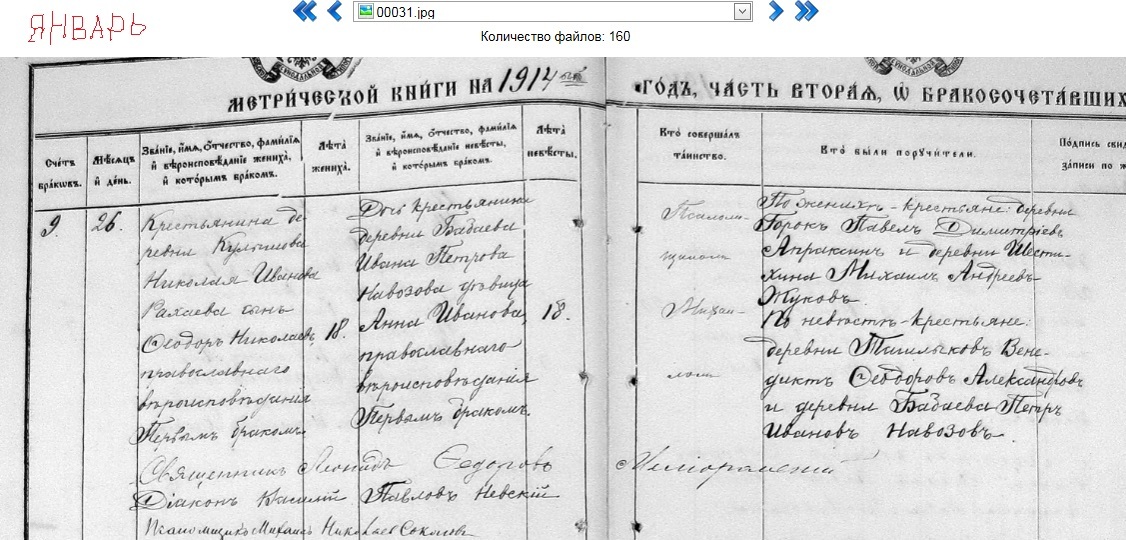 ЯНВАРЬ
00031.jpg
Количество файлов: 160
МЕТРИ́ЧЕСКОЙ КНИ́ГИ НА 1914 ГО́ДЪ, ЧА́СТЬ ВТОРА́Я, Ѡ БРАКОСОЧЕТА́ВШИХ
Сче́тъ бра́ковъ.
Мѣ́сяцъ и́ де́нь.
Зва́нїе, и́мя, ѻ́тчество, фами́лїя и́ вѣроисповѣ́данїе жениха̀, и́ кото́рымъ бра́комъ.
Лѣ́та жениха̀.
Зва́нїе, и́мя, ѻ́тчество, фами́лїя и́ вѣроисповѣ́данїе невѣ́сты, и́ кото́рымъ бра́комъ.
Лѣ́та невѣ́сты.
Кто̀ соверша́лъ та́инство.
Кто̀ бы́ли поручи́тели.
По́дпись
за́писи по ж
9
26.
Крестьянина де-
ревни
Николая Иванова
сынъ
Ѳеодоръ Николаевъ,
православнаго
вѣроисповѣданія
Первымъ бракомъ.
18.
Дочь крестьянина
деревни Бабаева
Ивана Петрова
Навозова дѣвица
Анна Иванова,
православнаго
вѣроисповѣданія
Первымъ бракомъ.
18.
По женихѣ - крестьяне: деревни
Горокъ Павелъ Димитріевъ
Апраксинъ и деревни Шести-
хина Михаилъ Андреевъ
Жуковъ.
По невѣстѣ - крестьяне:
деревни Вене-
диктъ Ѳеодоровъ Александровъ
и деревни Бабаева Петръ
Ивановъ Навозовъ.
Священникъ Леонидъ Ѳедоровъ
Діаконъ Василій Павловъ Невскій
Псаломщикъ Михаилъ Николаевъ Соколовъ